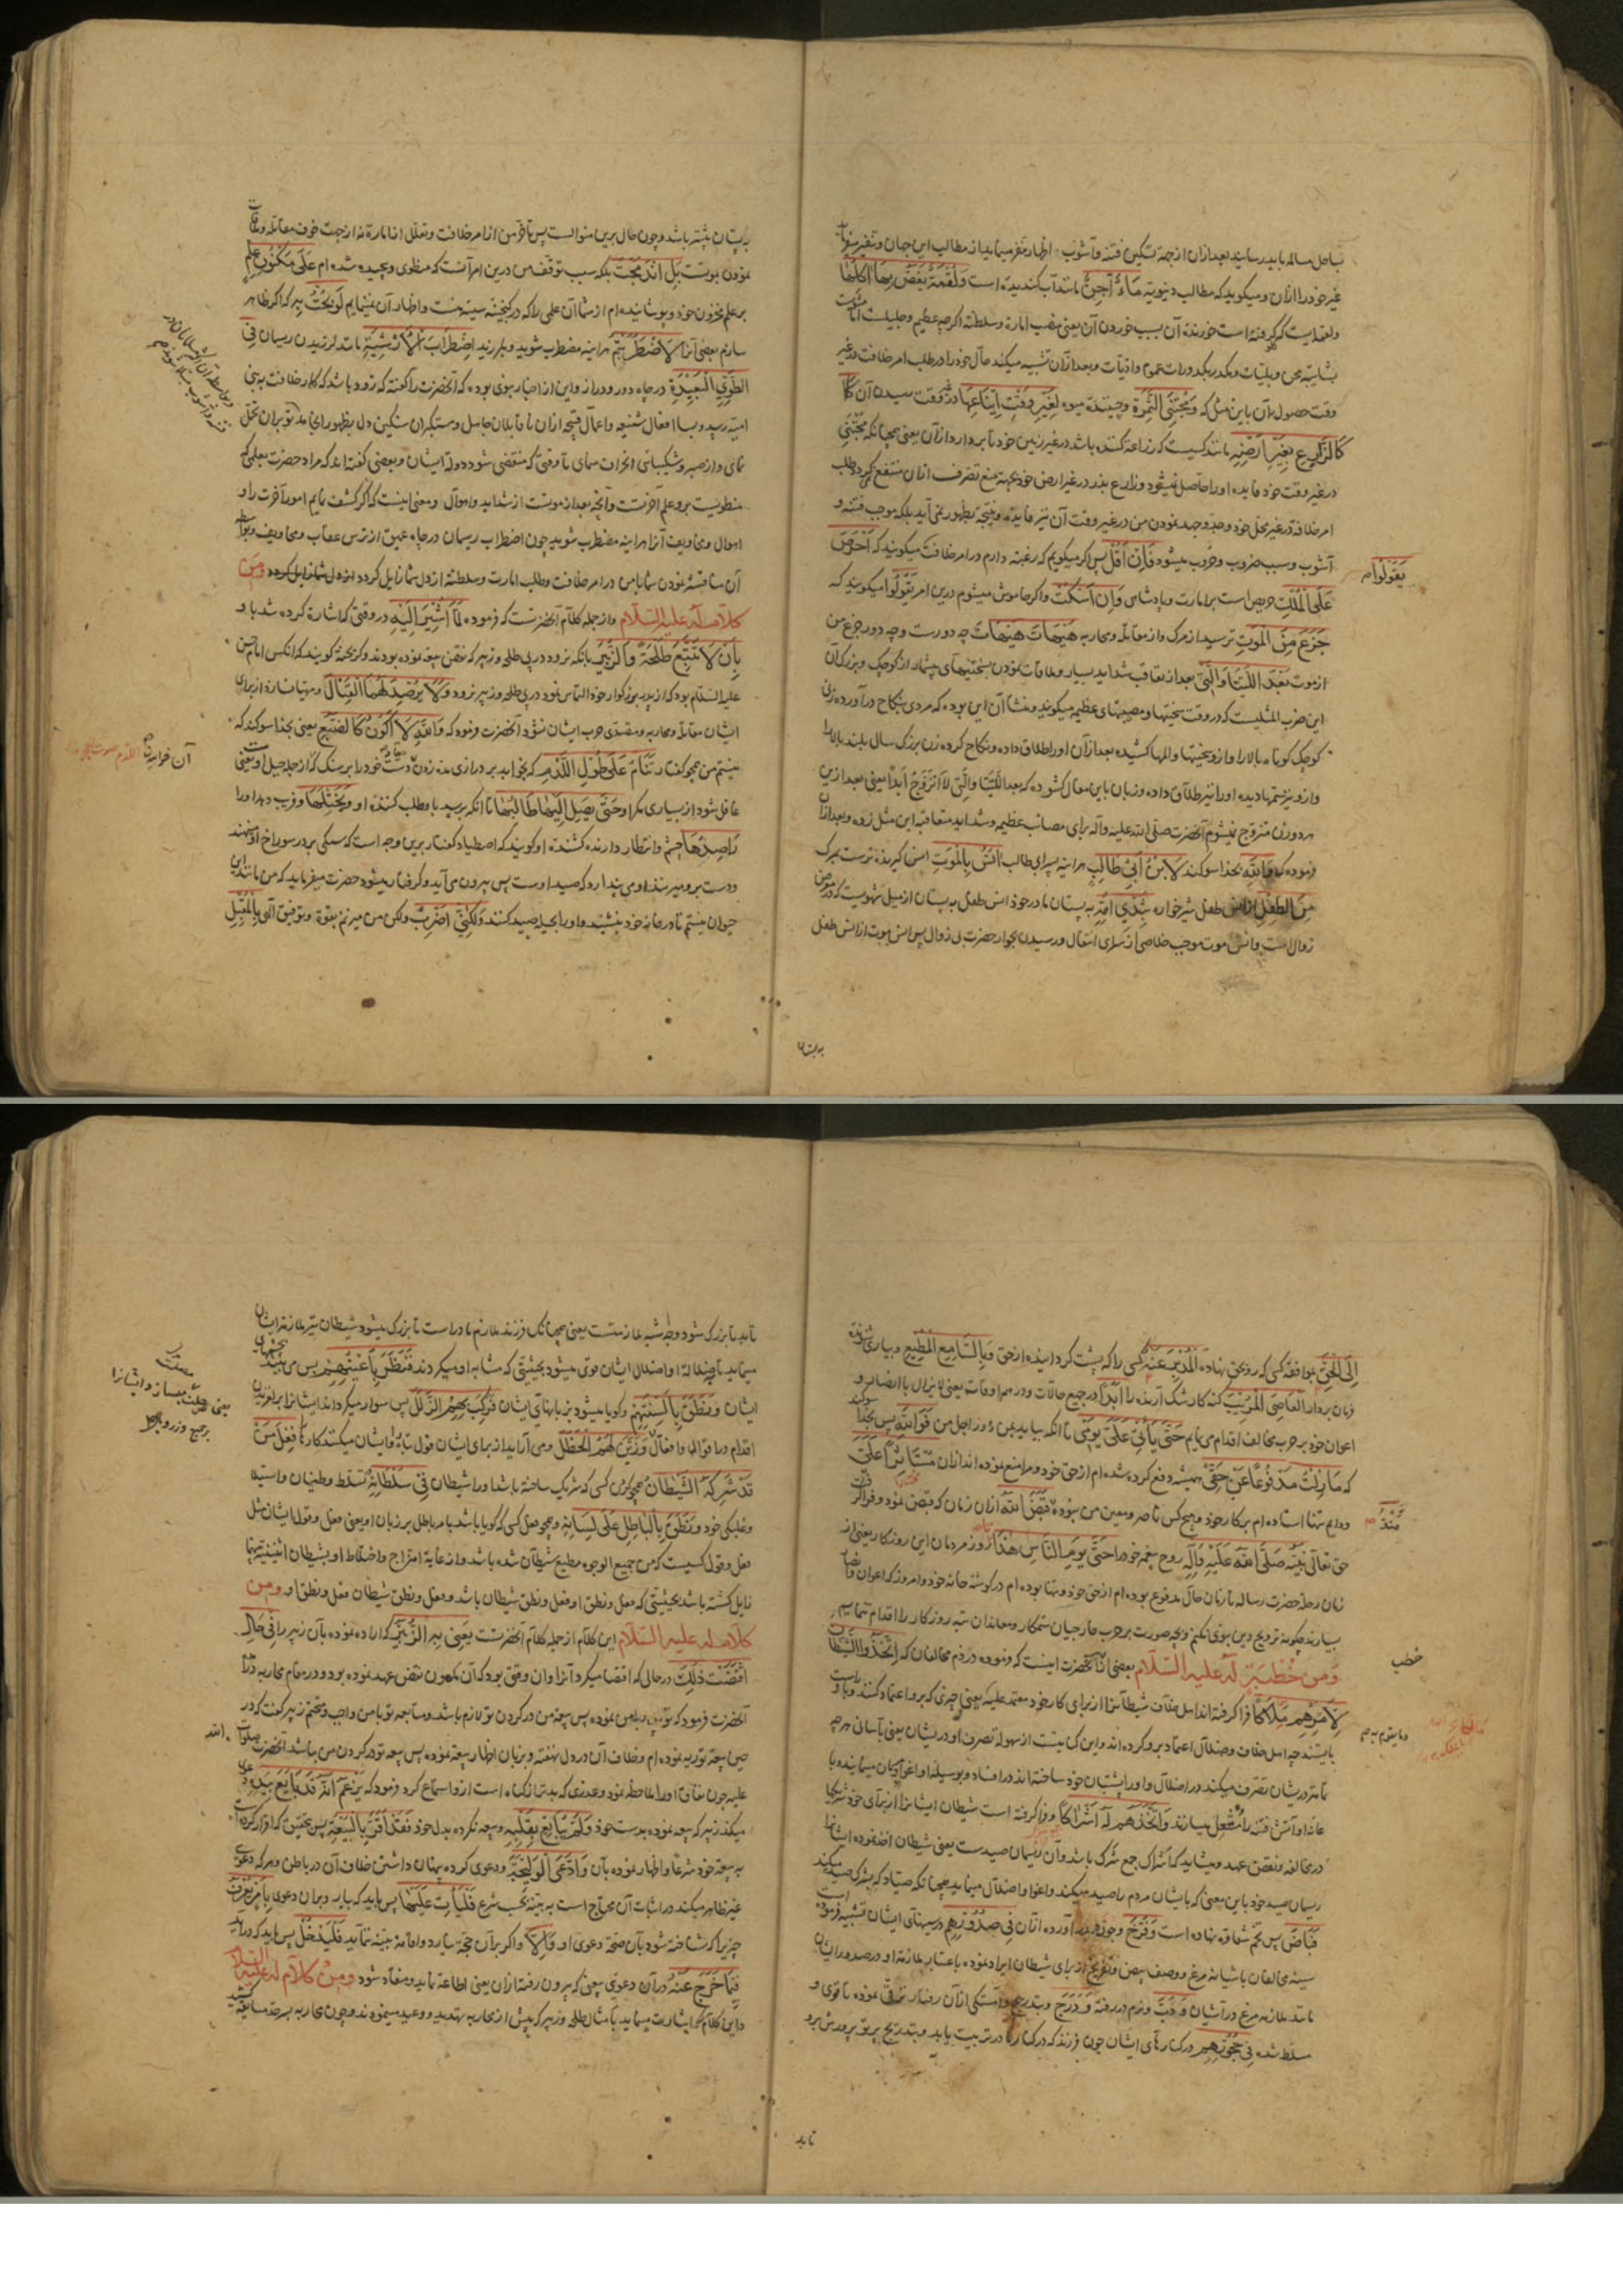 بساحل سالم باید رسانید بعد ازان از جهة تسکین فتنه و آشوب اظهار تنفر مینماید از مطالب این جهان و
غیر خود را ازان و میگوید که مطالب دنیویه مَاءٌ آجِنٌ مانند آب کندیده است وَلُقْمَةٌ يَغَصُّ بِهَا آكِلُهَا
ولقمه ایست که کلو گرفته است خورنده آن بسبب خوردن آن یعنی منصب امارة و سلطنة اگرچه عظیم و جلیلست اما
بشایبه محن و بلیات و مکدر بکدورات هموم و اذیات و بعد ازان تشبیه میکند حال خود را در طلب امر خلافت در غیر
وقت حصول آن باین مثل که وَمُجْتَنِي الثَّمَرَةِ و چیننده میوه لِغَيْرِ وَقْتِ إِينَاعِهَا در غیر وقت رسیدن آن
كَالزَّارِعِ بِغَيْرِ أَرْضِهِ مانند کسیست که زراعة کننده باشد در غیر زمین خود یعنی همچنانکه مجتنی
در غیر وقت خود فایده او را حاصل نمیشود و زارع بذر در غیر ارض خود بجهة منع تصرف ازان منتفع نمیگردد طلب
امر خلافة در غیر محل خود و جد و جهد نمودن من در غیر وقت آن نیز فایده و نتیجه بظهور نمی آید بلکه موجب فتنه و
آشوب و سبب حروب میشود فَإِنْ أَقُلْ پس اگر میگویم که رغبة دارم در امر خلافت میگویند که حَرَصَ
عَلَى الْمُلْكِ حریص است بر امارت و پادشاهی وَإِنْ أَسْكُتْ و اگر خاموش میشوم درین امر يَقُولُوا میگویند که
جَزَعَ مِنَ الْمَوْتِ ترسید از مرک و از مقابله و محاربه هَيْهَاتَ هَيْهَاتَ چه دورست و چه دور جزع من
از موت بَعْدَ اللَّتَيَّا وَالَّتِي بعد از تعاقب شداید بسیار و ملاقات نمودن بسختیهای بیشمار از کوچک و بزرک آن
این ضرب المثلیست که در وقت سختیها و مصیبتهای عظیمه میگویند و منشأ آن این بوده که مردی بنکاح در آورده زنی
کوچک کوتاه بالا را و ازو سختیها و المها کشیده بعد ازان او را طلاق داده و نکاح کرده زن بزرک سال بلند بالا را
و ازو نیز ستمها دیده او را نیز طلاق داده و زبان باین مقال کشوده که بعد اللتیا والتی لا اتزوج ابدا یعنی بعد ازین
هر دو زن متزوج نمیشوم آنحضرت صلی الله علیه و آله برای مصائب عظیمه و شداید متعاقبه این مثل زده و بعد ازان
فرموده که وَاللَّهِ بخدا سوکند لَابْنُ أَبِي طَالِبٍ هر اینه پسر ابی طالب آنَسُ بِالْمَوْتِ انس گیرنده ترست بمرک
مِنَ الطِّفْلِ از انس طفل شیرخواره بِثَدْيِ أُمِّهِ به پستان مادر خود انس طفل به پستان از میل شهویست که در معرض
زوال است و انس موت موجب خلاصی از سرای انتقال و رسیدن بجوار حضرت بی زوال پس انس موت از انس طفل
يَقُولُوا
به پستان
به پستان بیشتر باشد و چون حال برین منوالست پس تاخر من از امر خلافت و تعلل از امارة نه از جهت خوف مقاتله و
نمودن بوتست بَلِ انْدَمَجْتُ بلکه سبب توقف من درین امر آنست که منطوی و پیچیده شده ام عَلَى مَكْنُونِ عِلْمٍ
بر علم مخزون خود و پوشانیده ام از شما آن علمی را که در گنجینه سینه منست و اظهار آن نمینمایم لَوْ بُحْتُ بِهِ که اگر ظاهر
سازم یعنی آنرا لَاضْطَرَبْتُمْ هر اینه مضطرب شوید و بلرزید اضْطِرَابَ الْأَرْشِيَةِ مانند لرزیدن ریسمان فِي
الطَّوِيِّ الْبَعِيدَةِ در چاه دور و دراز و این از اخبار نبوی بوده که آنحضرت را گفته که زود باشد که کار خلافت به بنی
امیه رسید و بسا افعال شنیعه و اعمال قبیحه ازان ناقابلان جاهل و متکبران سنکین دل بظهور انجامد تو بران تحمل
نمای و از صبر و شکیبائی انحراف منمای تا وقتی که منقضی شود دولة ایشان و بعضی گفته اند که مراد حضرت بعلمی که
منطویست برو علم آخرتست و آنچه بعد از موتست از شداید و اهوال و معنی اینست که اگر کشف نمایم امور آخرت را و
اهوال و مخاویف آنرا هر اینه مضطرب شوید چون اضطراب ریسمان در چاه عمیق از ترس عقاب و مخاویف و
آن منافسه نمودن شما با من در امر خلافت و طلب امارت و سلطنة از دل شما زایل کردد وَمِنْ
كَلَامٍ لَهُ عَلَيْهِ السَّلَامُ و از جمله کلام آنحضرتست که فرموده لَمَّا أُشِيرَ إِلَيْهِ در وقتی که اشارت کرده شد باو
بِأَنْ لَا يَتَّبِعَ طَلْحَةَ وَالزُّبَيْرَ بآنکه نرود در پی طلحه و زبیر که نقض بیعة نموده بودند و گریخته گویند که آنکس امام حسن
علیه السلام بود که از پدر بزرگوار خود التماس نمود در پی طلحه و زبیر نرود وَلَا يُرْصِدَ لَهُمَا الْقِتَالَ و مهیا نسازد از برای
ایشان مقاتله و محاربه و متصدی حرب ایشان نشود آنحضرت فرمود که وَاللَّهِ لَا أَكُونُ كَالضَّبُعِ یعنی بخدا سوکند که
نیستم من همچو کفتار تَنَامُ عَلَى طُولِ اللَّدْمِ که بخوابد بر درازی مدة زدن صیاد دست خود را بر سنک
غافل شود از بسیاری مکر او حَتَّى يَصِلَ إِلَيْهَا طَالِبُهَا تا آنکه برسد باو طلب کننده او وَيَخْتِلَهَا و فریب دهد او را
رَاصِدُهَا چشم و انتظار دارنده کشنده او گویند که اصطیاد کفتار برین وجه است که سنکی بر در سوراخ او مینهند
و دست برو میزنند او می پندارد که صید اوست پس بیرون می آید و گرفتار میشود حضرت میفرماید که من مانند این
حیوان نیستم تا در خانه خود بنشیند و او را بحیله صید کنند وَلَكِنِّي أَضْرِبُ ولکن من میزنم بقوة و توفیق الهی بِالْمُقْبِلِ
إِلَى الْحَقِّ بموافقه کسی که روی بحق نهاده الْمُدْبِرَ عَنْهُ کسی را که پشت گرداننده از حق وَبِالسَّامِعِ الْمُطِيعِ و بیاری شنونده
فرمان بردار الْعَاصِيَ الْمُرِيبَ گنه کار شک آرنده را أَبَدًا در جمیع حالات و در همه اوقات یعنی لایزال با انصار و
اعوان خود بر حرب مخالف اقدام می نمایم حَتَّى يَأْتِيَ عَلَيَّ يَوْمِي تا آنکه بیاید بمن روز اجل من فَوَاللَّهِ پس بخدا سوکند
که مَا زِلْتُ مَدْفُوعًا عَنْ حَقِّي همیشه دفع کرده شده ام از حق خود و مرا منع نموده اند ازان مُسْتَأْثَرًا عَلَيَّ
و دایم تنها استاده ام بر کار خود و هیچ کس ناصر و معین من نبوده مُنْذُ قَبَضَ اللَّهُ ازان زمان که قبض نمود و فرا گرفت
حق تعالی نَبِيَّهُ صَلَّى اللَّهُ عَلَيْهِ وَآلِهِ روح پیغمبر خود را حَتَّى يَوْمِ النَّاسِ هَذَا تا روز مردمان این روزکار یعنی از
زمان رحلة حضرت رسالة تا زمان حال مدفوع بوده ام از حق خود و تنها بوده ام در گوشه خانه خود و امروز که اعوان و انصار
بسیارند چگونه ترویج دین نبوی نکنم و بچه صورت بر حرب خارجیان ستمکار و معاندان تبه روزکار را اقدام ننمایم
وَمِنْ خُطْبَةٍ لَهُ عَلَيْهِ السَّلَامُ بعضی از خطب آنحضرت اینست که فرموده در ذم مخالفان که اتَّخَذُوا الشَّيْطَانَ
لِأَمْرِهِمْ مِلَاكًا فرا گرفته اند اهل خلاف شیطانرا از برای کار خود معتمد علیه یعنی چیزی که برو اعتماد کنند
بایستد چه اهل خلاف و ضلال اعتماد برو کرده اند و این کنایتست از سهولة تصرف او در ایشان یعنی بآسانی هر چه
تمامتر در ایشان تصرف میکند در اضلال و او را پشتبان خود ساخته اند در افساد و بوسیله او اغوای کسان مینمایند و با
عانة او آتش فتنه را مشعل میسازند وَاتَّخَذَهُمْ لَهُ أَشْرَاكًا و فرا گرفته است شیطان ایشانرا از برای خود شریکها
در مخالفة و نقض عهد و میشاید که اشراک جمع شرک باشد و آن ریسمان صیدست یعنی شیطان اخذ نموده ایشانرا
ریسمان صید خود باین معنی که بایشان مردم را صید میکند و اغوا و اضلال مینماید همچنانکه صیاد که بشرک صید میکند
فَبَاضَ پس تخم شقاوة نهاده است وَفَرَّخَ و جوجه برآورده ازان فِي صُدُورِهِمْ در سینهای ایشان تشبیه فرموده است
سینه مخالفان باشیانه مرغ و وصف بیض و تفریخ از برای شیطان ایراد نموده باعتبار ملازمة او در صدور ایشان
مانند ملازمه مرغ در آشیان وَدَبَّ و نرم در رفته وَدَرَجَ و بتدریج و آهستکی ازان رفتار ترقی نموده تا قوی و
مسلط شده فِي حُجُورِهِمْ در کنارهای ایشان چون فرزند که در کنار مادر تربیت یابد و بتدریج پرتو پرورش برو
مُنْذُ
خطب
تابد
تابد تا بزرک شود وجه شبه ملازمتست یعنی همچنانکه فرزند ملازم مادر است تا بزرک میشود شیطان نیز ملازمة ایشان
مینماید تا ضلالة و اضلال ایشان قوی میشود بحیثیتی که مشابه او میکردند فَنَظَرَ بِأَعْيُنِهِمْ پس می بیند بچشمهای
ایشان وَنَطَقَ بِأَلْسِنَتِهِمْ و گویا میشود بزبانهای ایشان فَرَكِبَ بِهِمُ الزَّلَلَ پس سوار میکرداند ایشانرا بر لغزیدن
اقدام در اقوال و افعال وَزَيَّنَ لَهُمُ الْخَطَلَ و می آراید از برای ایشان قول تباه و ایشان میکنند کار فِعْلَ مَنْ
قَدْ شَرِكَهُ الشَّيْطَانُ همچو کردن کسی که شریک ساخته باشد او را شیطان فِي سُلْطَانِهِ تسلط و طغیان و استیلا
و غلبکی خود وَنَطَقَ بِالْبَاطِلِ عَلَى لِسَانِهِ و همچو فعل کسی که گویا باشد بامر باطل بر زبان او یعنی فعل و قول ایشان مثل
فعل و قول کسیست که من جمیع الوجوه مطیع شیطان شده باشد و از غایة امتزاج و اختلاط او بشیطان اثنینیة بینهما
زایل گشته باشد بحیثیتی که فعل و نطق او فعل و نطق شیطان باشد و فعل و نطق شیطان فعل و نطق او وَمِنْ
كَلَامٍ لَهُ عَلَيْهِ السَّلَامُ این کلام از جمله کلام آنحضرتست يَعْنِي بِهِ الزُّبَيْرَ که اراده نموده بآن زبیر را فِي حَالٍ
اقْتَضَتْ ذَلِكَ در حالی که اقتضا میکرد آنرا و ان وقتی بود که آن ملعون نقض عهد نموده بود و در مقام محاربه
آنحضرت فرمود که تو بیعة بمن نموده پس بیعة من در گردن تو لازم باشد و متابعه تو با من واجب و متحتم زبیر گفت که در
حین بیعة توریه نموده ام و خلاف آن در دل نهفته و بزبان اظهار بیعة نموده پس بیعة تو در کردن من نباشد آنحضرت صلوات الله
علیه چون نفاق او را ملاحظه نمود و عذری که بدتر از گناه است ازو استماع کرد فرمود که يَزْعُمُ أَنَّهُ قَدْ بَايَعَ بِيَدِهِ دعوی
میکند زبیر که بیعة نموده بدست خود وَلَمْ يُبَايِعْ بِقَلْبِهِ و بیعه نکرده بدل خود فَقَدْ أَقَرَّ بِالْبَيْعَةِ پس بتحقیق که اقرار کرده است
به بیعة خود شرعا و اظهار نموده بآن وَادَّعَى الْوَلِيجَةَ و دعوی کرده پنهان داشتن خلاف آن در باطن و هر که دعوی
غیر ظاهر میکند در اثبات آن محتاج است به بینه بحسب شرع فَلْيَأْتِ عَلَيْهَا پس باید که بیارد بران دعوی بِأَمْرٍ يُعْرَفُ
چیزی را که شناخته شود بآن صحة دعوی او وَإِلَّا و اگر بران حجة نیارد و اقامة بینه ننماید فَلْيَدْخُلْ پس باید که درآید
فِيمَا خَرَجَ عَنْهُ در آن دعوی بیعتی که بیرون رفته ازان یعنی اطاعة نماید و منقاد شود وَمِنْ كَلَامٍ لَهُ عَلَيْهِ السَّلَامُ